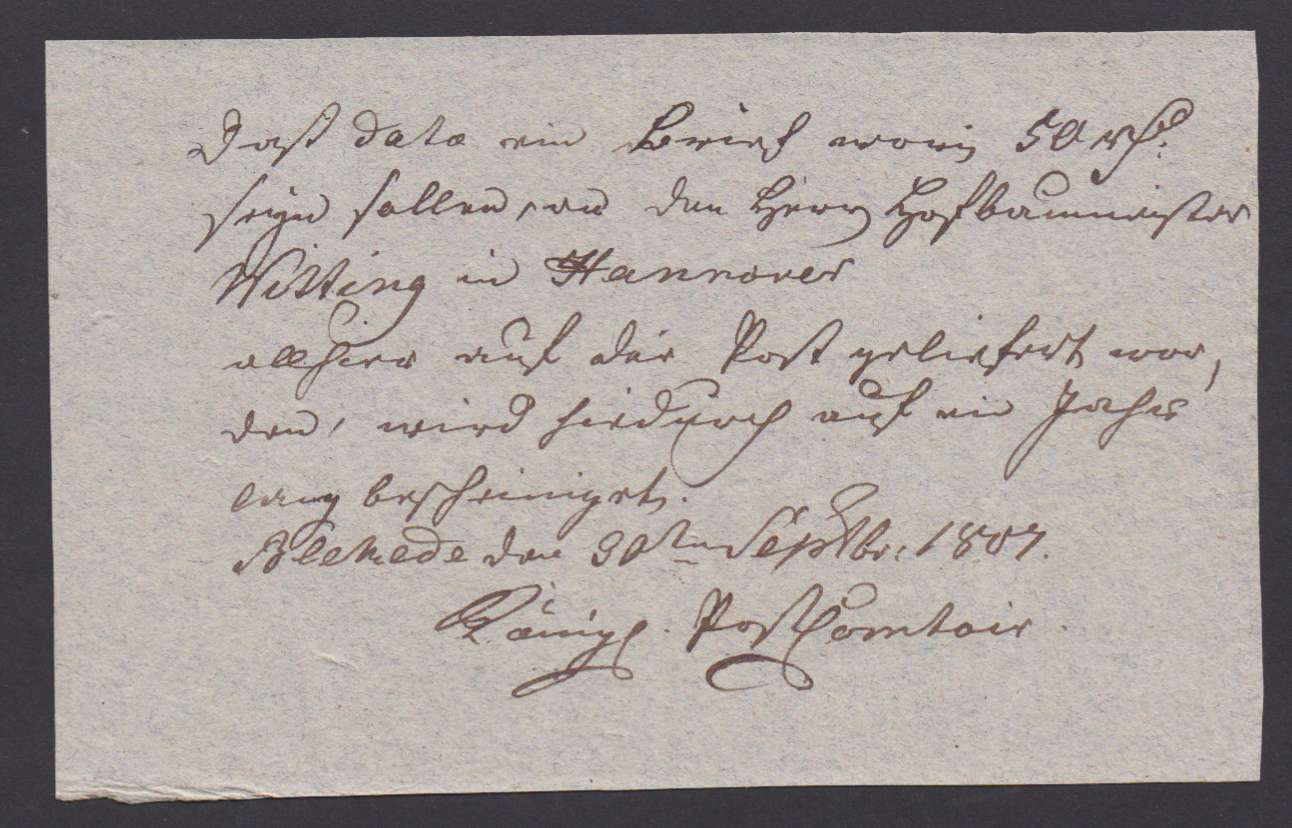 Daß dato ein Brief worin 50 rth.
seyn sollen, an den Herrn Hofbaumeister
Witting in Hannover
allhier auf der Post geliefert wor,
den, wird hiedurch auf ein Jahr
lang bescheiniget.
Bleckede den 30ten Septbr. 1807.
Königl. PostComtoir.